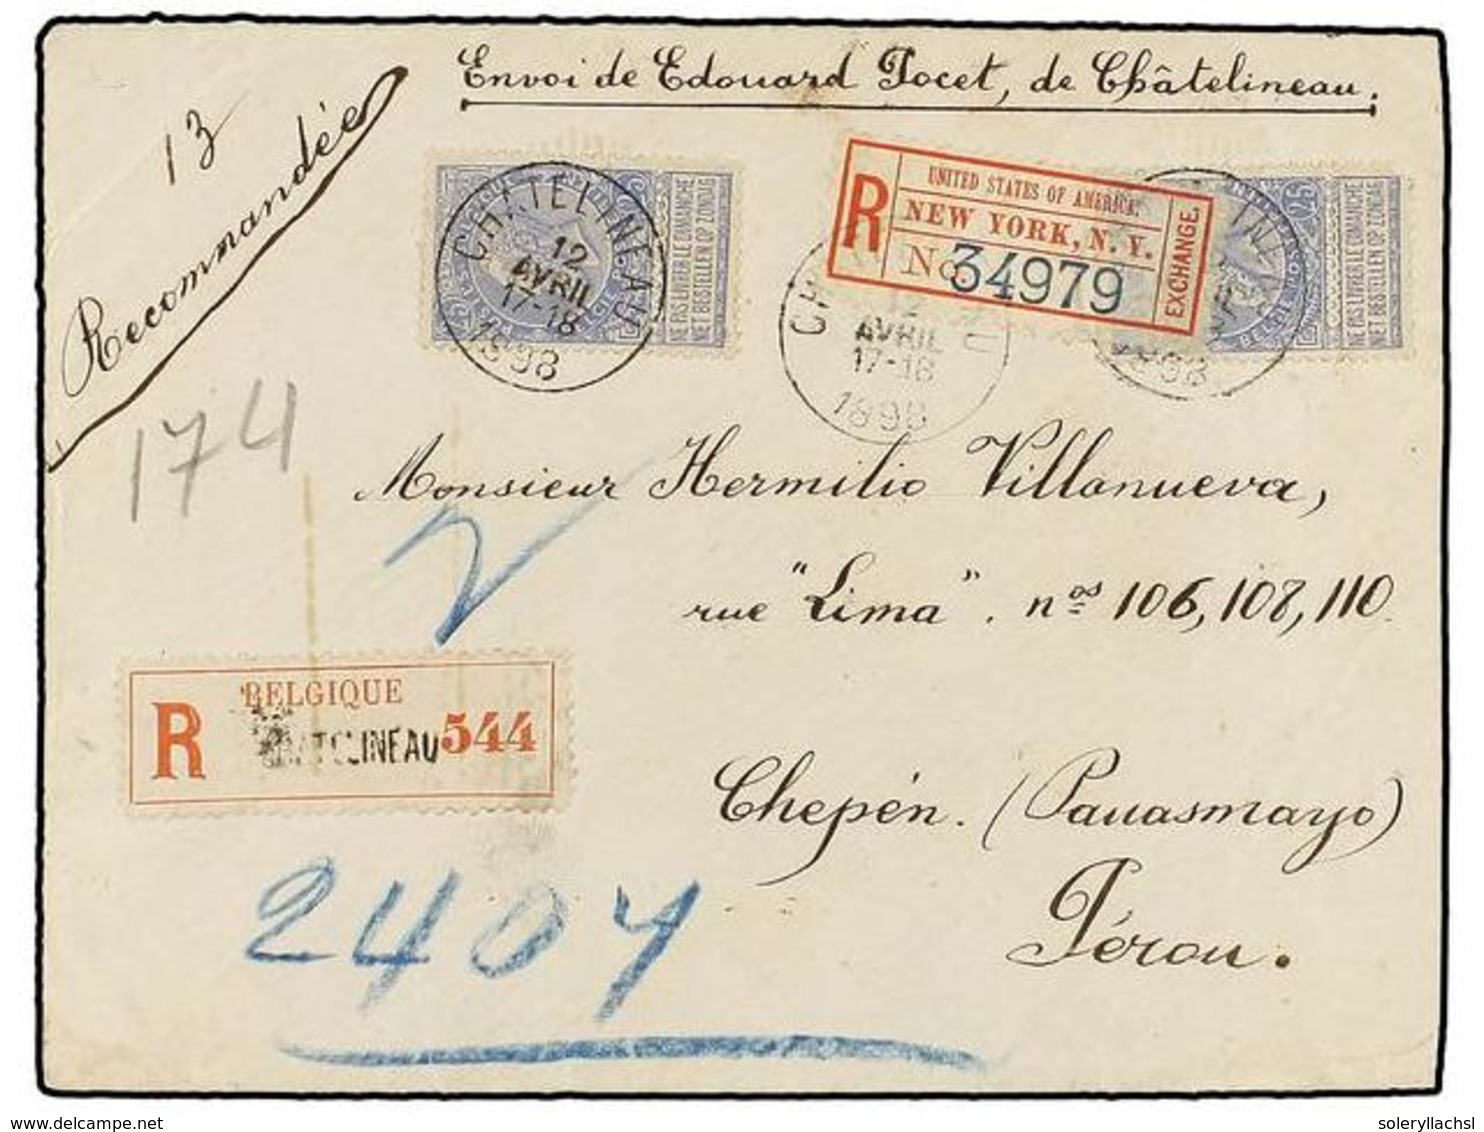 Envoi de Edouard Pocet, de Châtelineau.
13
Recommandée
CHATELINEAU
12
AVRIL
17-18
1898
NE PAS LIVRER LE DIMANCHE
NIET BESTELLEN OP ZONDAG
R
UNITED STATES OF AMERICA.
NEW YORK, N. Y.
No. 34979
EXCHANGE.
AVRIL
17-18
1898
NE PAS LIVRER LE DIMANCHE
NIET BESTELLEN OP ZONDAG
174
Monsieur Hermilio Villanueva,
rue "Lima". nos 106, 108, 110
R
BELGIQUE
CHATELINEAU 544
Chepén. (Pauasmayo)
Pérou.
2407
www.delcampe.net
soleryllachsl